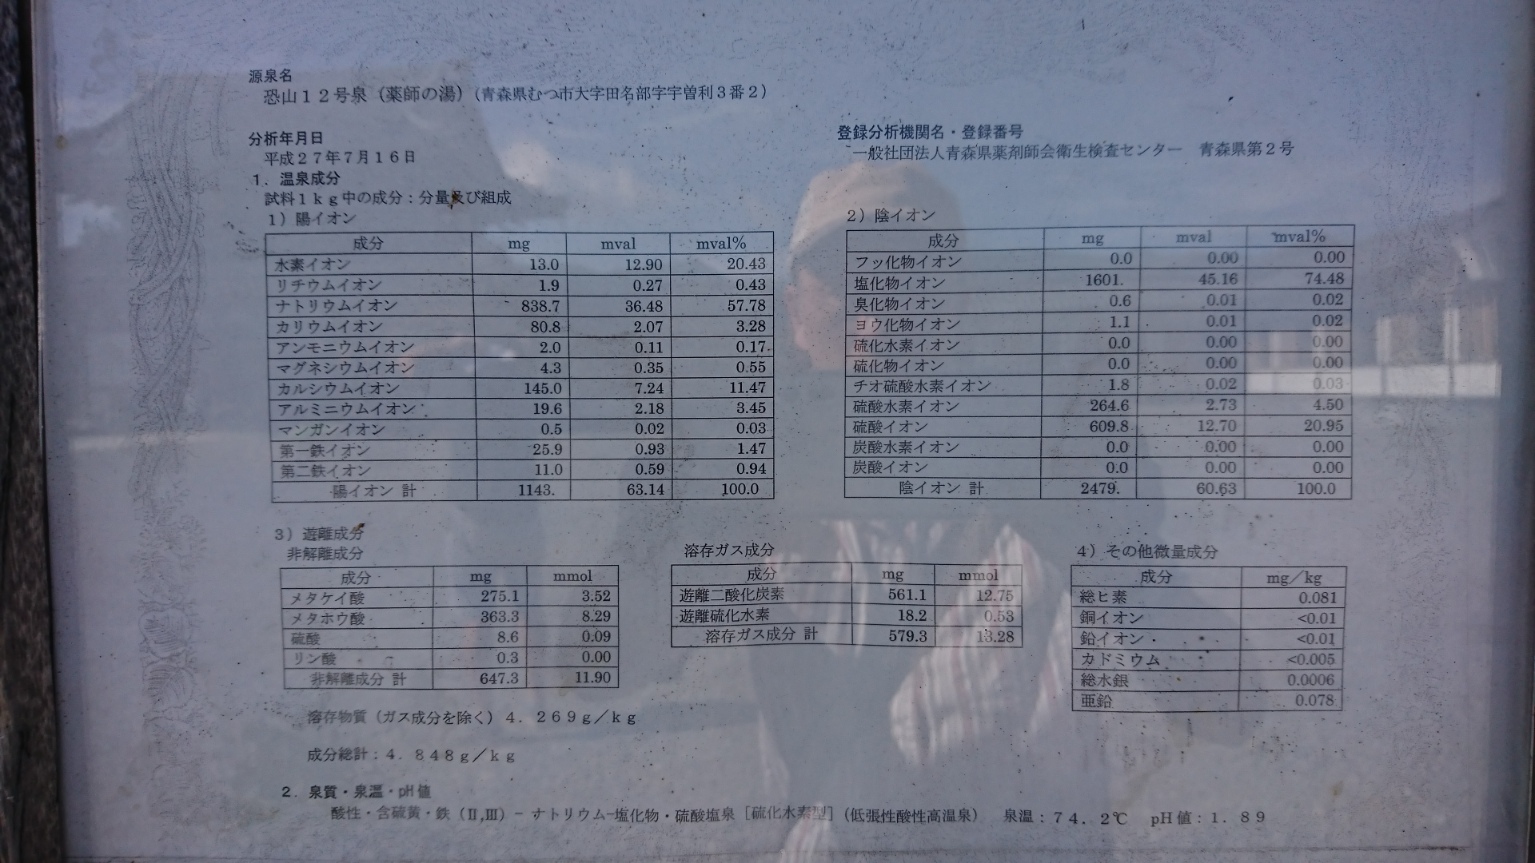 源泉名
恐山12号泉(薬師の湯)(青森県むつ市大字田名部字宇曽利3番2)
分析年月日
平成27年7月16日
登録分析機関名・登録番号
一般社団法人青森県薬剤師会衛生検査センター 青森県第2号
1.温泉成分
試料1kg中の成分:分量及び組成
1)陽イオン
成分 mg mval mval%
水素イオン 13.0 12.90 20.43
リチウムイオン 1.9 0.27 0.43
ナトリウムイオン 838.7 36.48 57.78
カリウムイオン 80.8 2.07 3.28
アンモニウムイオン 2.0 0.11 0.17
マグネシウムイオン 4.3 0.35 0.55
カルシウムイオン 145.0 7.24 11.47
アルミニウムイオン 19.6 2.18 3.45
マンガンイオン 0.5 0.02 0.03
第一鉄イオン 25.9 0.93 1.47
第二鉄イオン 11.0 0.59 0.94
陽イオン 計 1143. 63.14 100.0
2)陰イオン
成分 mg mval mval%
フッ化物イオン 0.0 0.00 0.00
塩化物イオン 1601. 45.16 74.48
臭化物イオン 0.6 0.01 0.02
ヨウ化物イオン 1.1 0.01 0.02
硫化水素イオン 0.0 0.00 0.00
硫化物イオン 0.0 0.00 0.00
チオ硫酸水素イオン 1.8 0.02 0.03
硫酸水素イオン 264.6 2.73 4.50
硫酸イオン 609.8 12.70 20.95
炭酸水素イオン 0.0 0.00 0.00
炭酸イオン 0.0 0.00 0.00
陰イオン 計 2479. 60.63 100.0
3)遊離成分
非解離成分
成分 mg mmol
メタケイ酸 275.1 3.52
メタホウ酸 363.3 8.29
硫酸 8.6 0.09
リン酸 0.3 0.00
非解離成分 計 647.3 11.90
溶存ガス成分
成分 mg mmol
遊離二酸化炭素 561.1 12.75
遊離硫化水素 18.2 0.53
溶存ガス成分 計 579.3 13.28
4)その他微量成分
成分 mg/kg
総ヒ素 0.081
銅イオン <0.01
鉛イオン <0.01
カドミウム <0.005
総水銀 0.0006
亜鉛 0.078
溶存物質(ガス成分を除く)4.269g/kg
成分総計:4.848g/kg
2.泉質・泉温・pH値
酸性・含硫黄・鉄(Ⅱ,Ⅲ)-ナトリウム-塩化物・硫酸塩泉[硫化水素型](低張性酸性高温泉) 泉温:74.2℃ pH値:1.89